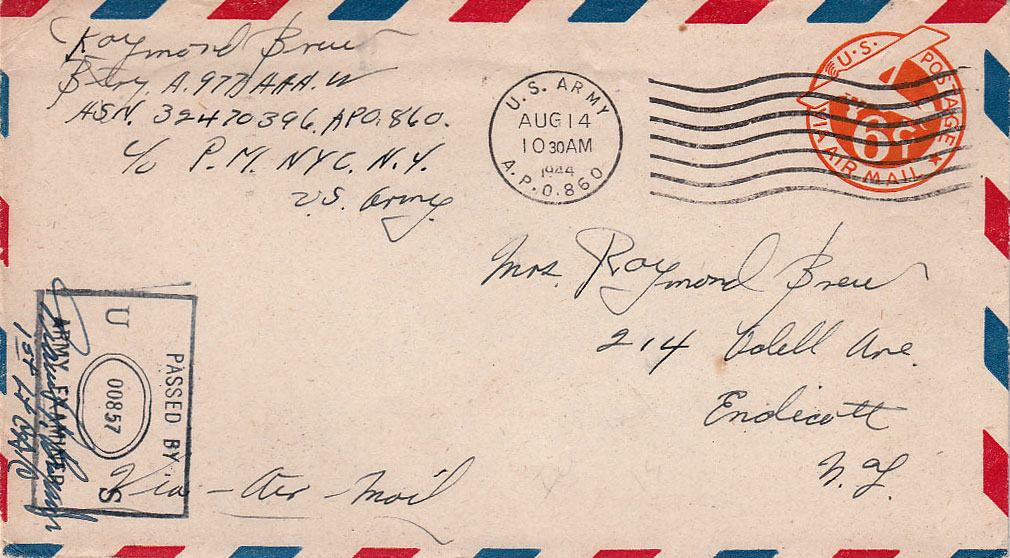 Raymond Brew
Btry. A. 977 AAA. W
ASN. 32470396. APO. 860.
c/o P.M. NYC. N.Y.
U.S. Army
U.S. ARMY
AUG 14
10 30 AM
1944
A.P.O. 860
U.S. POSTAGE
6¢
VIA AIR MAIL
Mrs. Raymond Brew
214 Odell Ave.
Endicott
N.Y.
PASSED BY
U S
00857
ARMY EXAMINER
1st Lt
Via - Air Mail